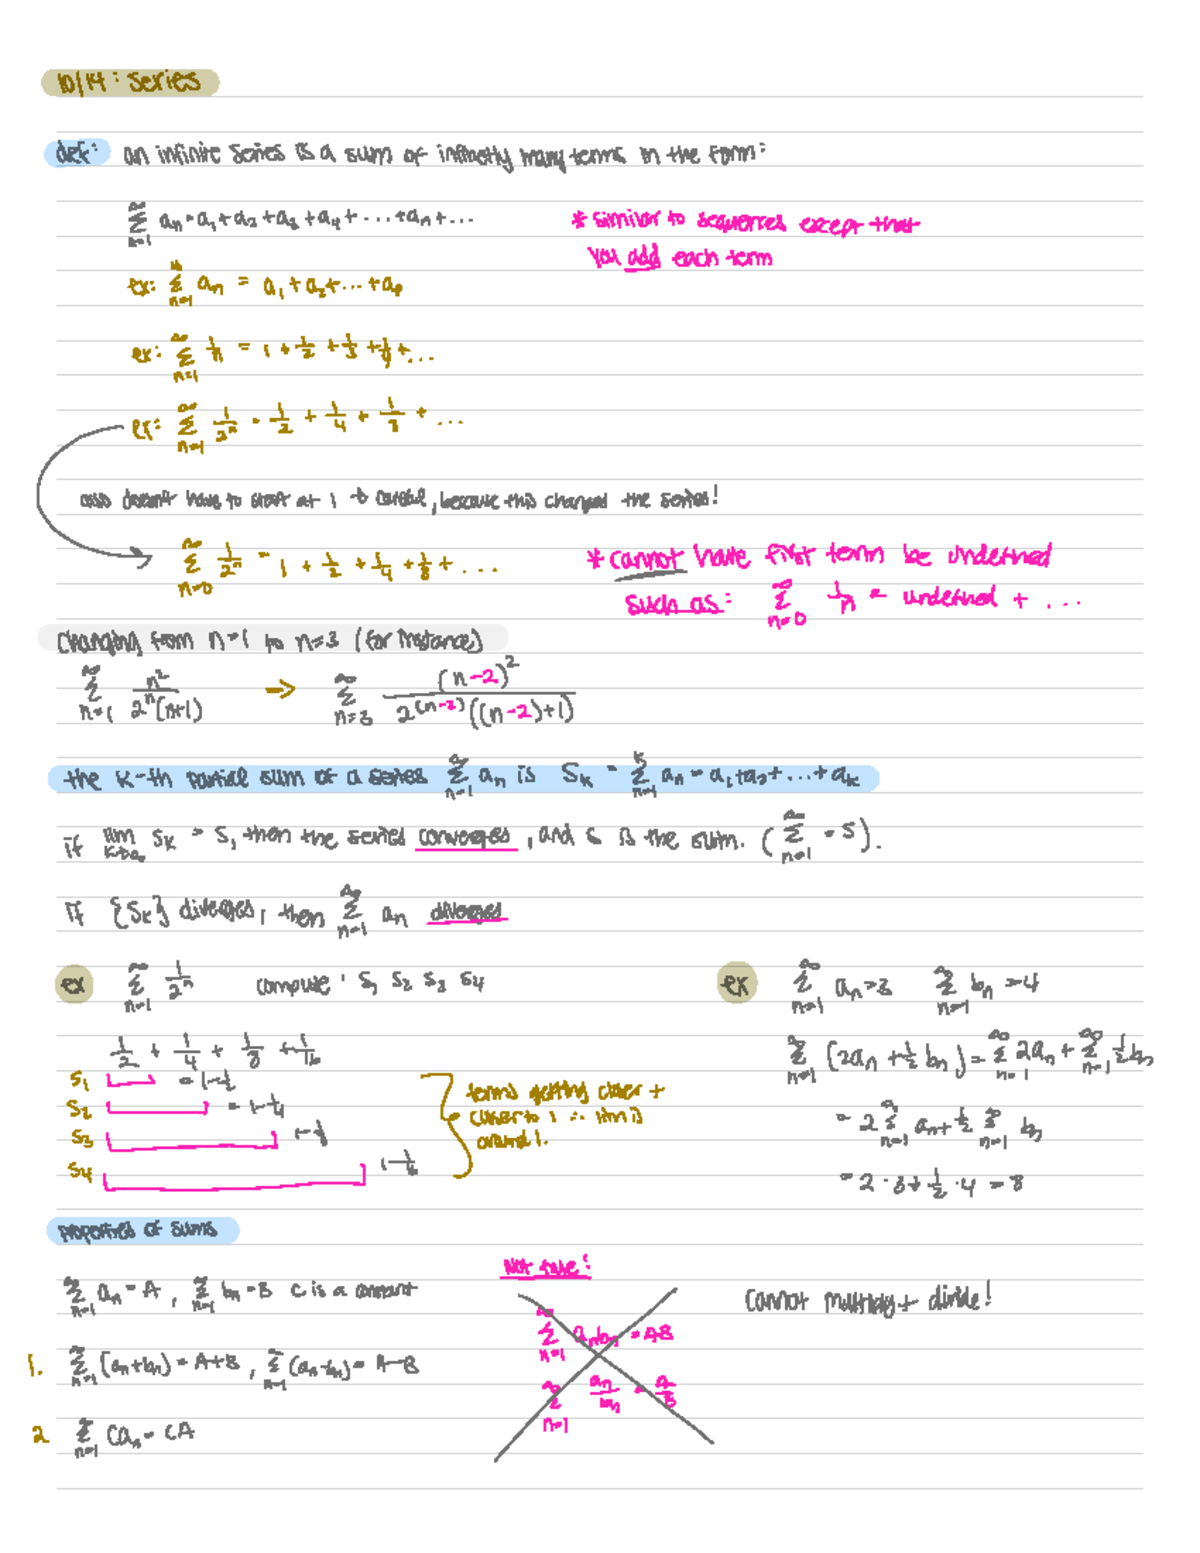 10/14: Series
def: an infinite series is a sum of infinitely many terms in the form:
∞Σn=1 an = a1 + a2 + a3 + a4 + ... + an + ...
* similar to sequences except that
you add each term
ex: Σn=1 an = a1 + a2 + ... + a
ex: ∞Σn=1 1/n = 1 + 1/2 + 1/3 + 1/4 + ...
ex: ∞Σn=1 1/2^n = 1/2 + 1/4 + 1/8 + ...
also doesn't have to start at 1 → careful, because this changed the series!
∞Σn=0 1/2^n = 1 + 1/2 + 1/4 + 1/8 + ...
* cannot have first term be undefined
such as: ∞Σn=0 1/n = undefined + ...
Changing from n=1 to n=3 (for instance)
∞Σn=1 n²/2^n(n+1) → ∞Σn=3 (n-2)²/2^(n-2)((n-2)+1)
the k-th partial sum of a series ∞Σn=1 an is Sk = kΣn=1 an = a1 + a2 + ... + ak
if lim k→∞ Sk = S, then the series converges, and S is the sum. (∞Σn=1 = S).
if {Sk} diverges, then ∞Σn=1 an diverges
ex ∞Σn=1 1/2^n compute: S1 S2 S3 S4
1/2 + 1/4 + 1/8 + 1/16
S1 = 1-1/2
S2 = 1-1/4
S3 1-1/8
S4 1-1/16
terms getting closer +
closer to 1 ∴ lim is
around 1.
ex ∞Σn=1 an=3 ∞Σn=1 bn=4
∞Σn=1 (2an + 1/2 bn) = ∞Σn=1 2an + ∞Σn=1 1/2 bn
= 2 ∞Σn=1 an + 1/2 ∞Σn=1 bn
= 2 · 3 + 1/2 · 4 = 8
properties of sums
∞Σn=1 an = A, ∞Σn=1 bn = B C is a constant
1. ∞Σn=1 (an+bn) = A+B, ∞Σn=1 (an-bn) = A-B
2 ∞Σn=1 Can = CA
Not true!
∞Σn=1 anbn = AB
∞Σn=1 an/bn = A/B
Cannot multiply + divide!